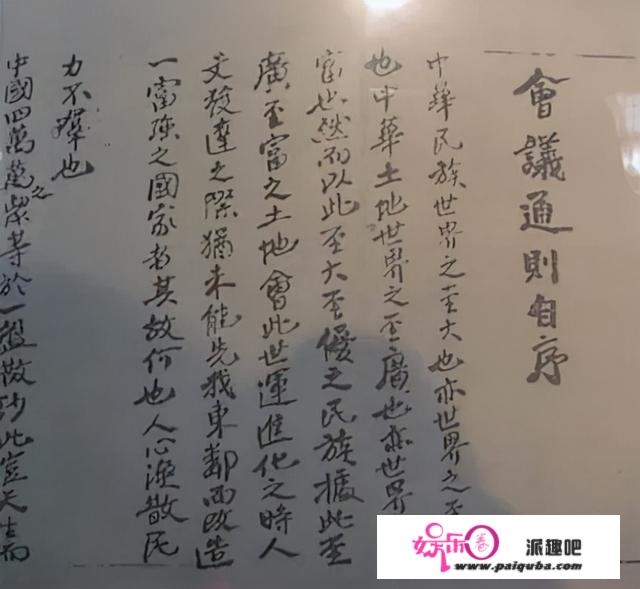 會議通則自序
中華民族世界之至大也亦世界之至
也中華土地世界之至廣也亦世界
富也然而以此至大至優之民族據此至
廣至富之土地會此世運進化之時人
文發達之際猶未能先我東鄰而改造
一富強之國家者其故何也人心渙散民
力不羣也
中國四萬萬之衆等於一盤散沙此豈天生而
娱乐卷
派趣吧
www.paiquba.com